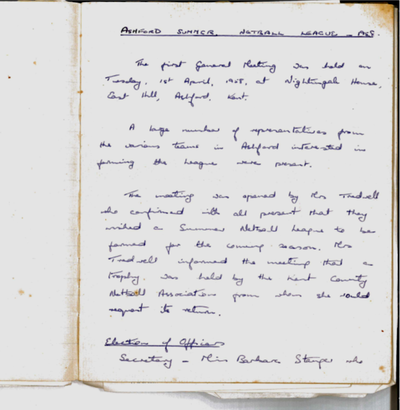 ASHFORD SUMMER NETBALL LEAGUE -
The first General Meeting was held on
Tuesday, 1st April, at Nightingale House,
East Hill, Ashford, Kent.
A large number of representatives from
the various teams in Ashford interested in
forming the League were present.
The meeting was opened by Mrs Tredwell
who confirmed with all present that they
wished a Summer Netball League to be
formed for the coming season. Mrs
Tredwell informed the meeting that a
trophy was held by the Kent County
Netball Association from whom she would
request its return.
Election of Officers
Secretary - Miss Barbara who